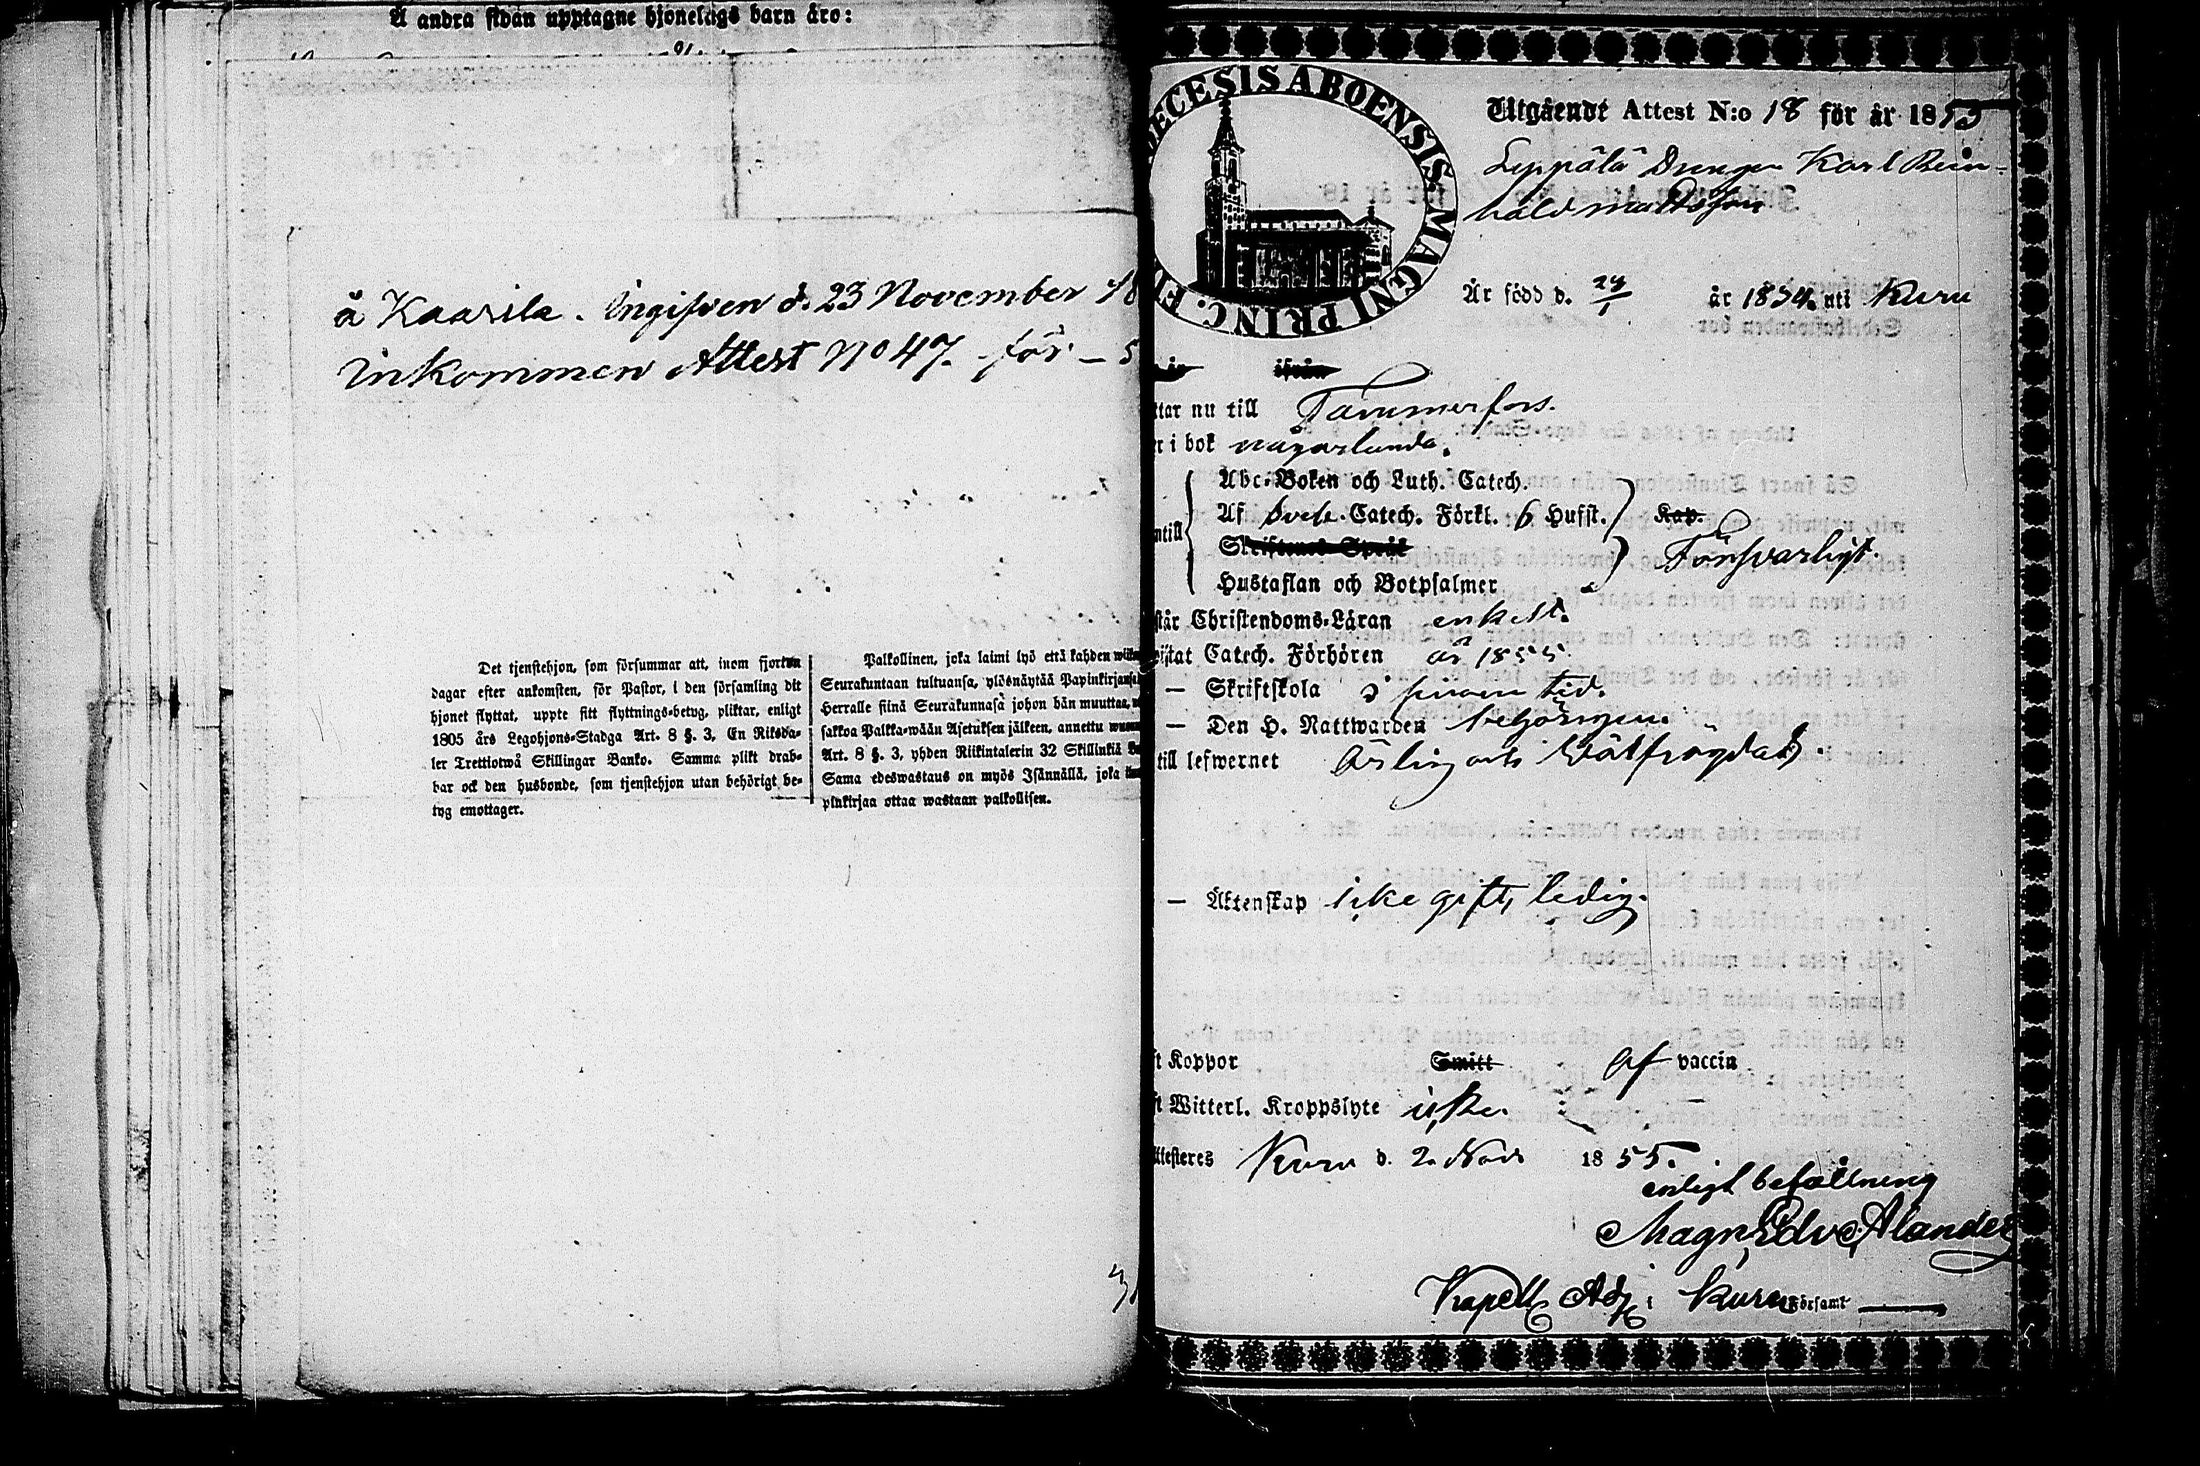 A andra sidan upptagne hjonelags barn äro:
å Kaarila. Ingifven d. 23 November 18
Inkommen Attest No 47. för - 5
Det tjenstehjon, som försummar att, inom fjorton
dagar efter ankomsten, för Pastor, i den församling dit
hjonet flyttat, uppte sitt flyttnings-betyg, pliktar, enligt
1805 års Legohjons-Stadga Art. 8 §. 3, En Riksda-
ler Trettiotwå Skillingar Banko. Samma plikt drab-
bar ock den husbonde, som tjenstehjon utan behörigt be-
tyg emottager.
Palkollinen, joka laimi lyö että kahden
Seurakuntaan tultuansa, ylösnäytää Papinkirjansa
Herralle siinä Seurakunnasa johon hän muuttaa,
sakkoa Palkka-wään Asetuksen jälkeen, annettu
Art. 8 §. 3, yhden Riikintalerin 32 Skillinkiä
Sama edeswastaus on myös Isännällä, joka
pinkirjaa ottaa wastaan palkollisen.
ECESIS ABOENSIS MAGNI PRINC. FI
Utgåendt Attest N:o 18 för år 1855
Leppälä Drengen Karl Rein-
hold Mattsson
Är född d. 24/1 år 1834 uti Kuru
ifrån
ttar nu till Tammerfors.
r i bok någorlunda.
Abc-Boken och Luth. Catech.
Af Sveb. Catech. Förkl. 6 Hufst. Kap.
ntill Skriftenes Språk Försvarligt.
Hustaflan och Botpsalmer
står Christendoms-Läran enkelt.
istat Catech. Förhören år 1855
— Skriftskola i sinom tid.
— Den H. Nattwarden behörigen.
till lefwernet Ärlig och Välfrägdad.
— Äktenskap icke gift, ledig.
ft Koppor Smitt af vaccin
ft Witterl. Kroppslyte icke.
ttesteres Kuru d. 2 Nov. 1855.
enligt befallning
Magn. Edv. Alander
Kapell. Adj. i Kuru Församl